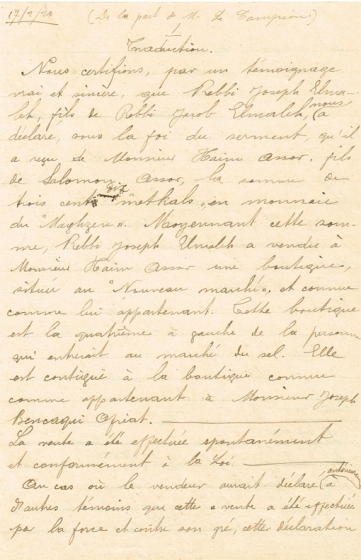 17/2/20 (De la part de M. L. Campion)
1
Traduction.
Nous certifions, par un témoignage
vrai et sincère, que Rebbi Joseph Elma-
leh, fils de Rebbi Jacob Elmaleh, nous (a
déclaré, sous la foi du serment, qu'il
a reçu de Monsieur Haim Assor, fils
de Salomon Assor, la somme de
trois cent dix "methkals", en monnaie
du "Maghzen". Moyennant cette som-
me, Rebbi Joseph Elmaleh a vendu à
Monsieur Haim Assor une boutique,
située au "Nouveau marché", et connue
comme lui appartenant. Cette boutique
est la quatrième à gauche de la personne
qui entrerait au marché du sel. Elle
est contiguë à la boutique connue
comme appartenant à Monsieur Joseph
La vente a été effectuée spontanément
et conformément à la Loi.
Au cas où le vendeur aurait déclaré (à
d'autres témoins que cette vente a été effectuée
par la force et contre son gré, cette déclaration